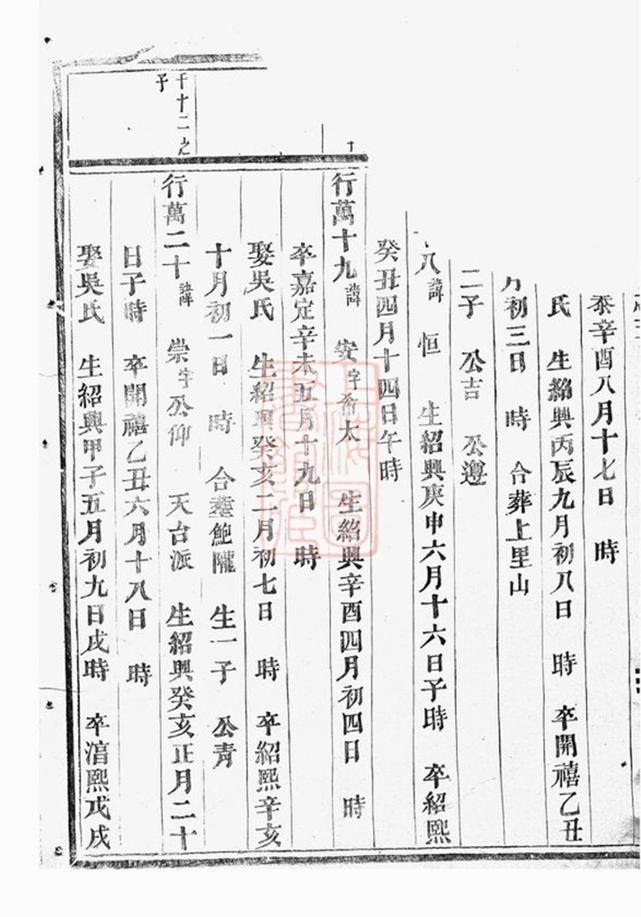 泰辛酉八月十七日 時
氏 生紹興丙辰九月初八日 時 卒開禧乙丑
月初三日 時 合葬上里山
二子 公吉 公遵
八 諱 恒 生紹興庚申六月十六日子時 卒紹熙
癸丑四月十四日午時
行萬十九 諱 安 字希太 生紹興辛酉四月初四日 時
卒嘉定辛未五月十九日 時
娶吳氏 生紹興癸亥二月初七日 時 卒紹熙辛亥
十月初一日 時 合塟鮑隴 生一子 公青
千十二之
予
行萬二十 諱 崇 字公仰 天台派 生紹興癸亥正月二十
日子時 卒開禧乙丑六月十八日 時
娶吳氏 生紹興甲子五月初九日戌時 卒淯熙戊戌